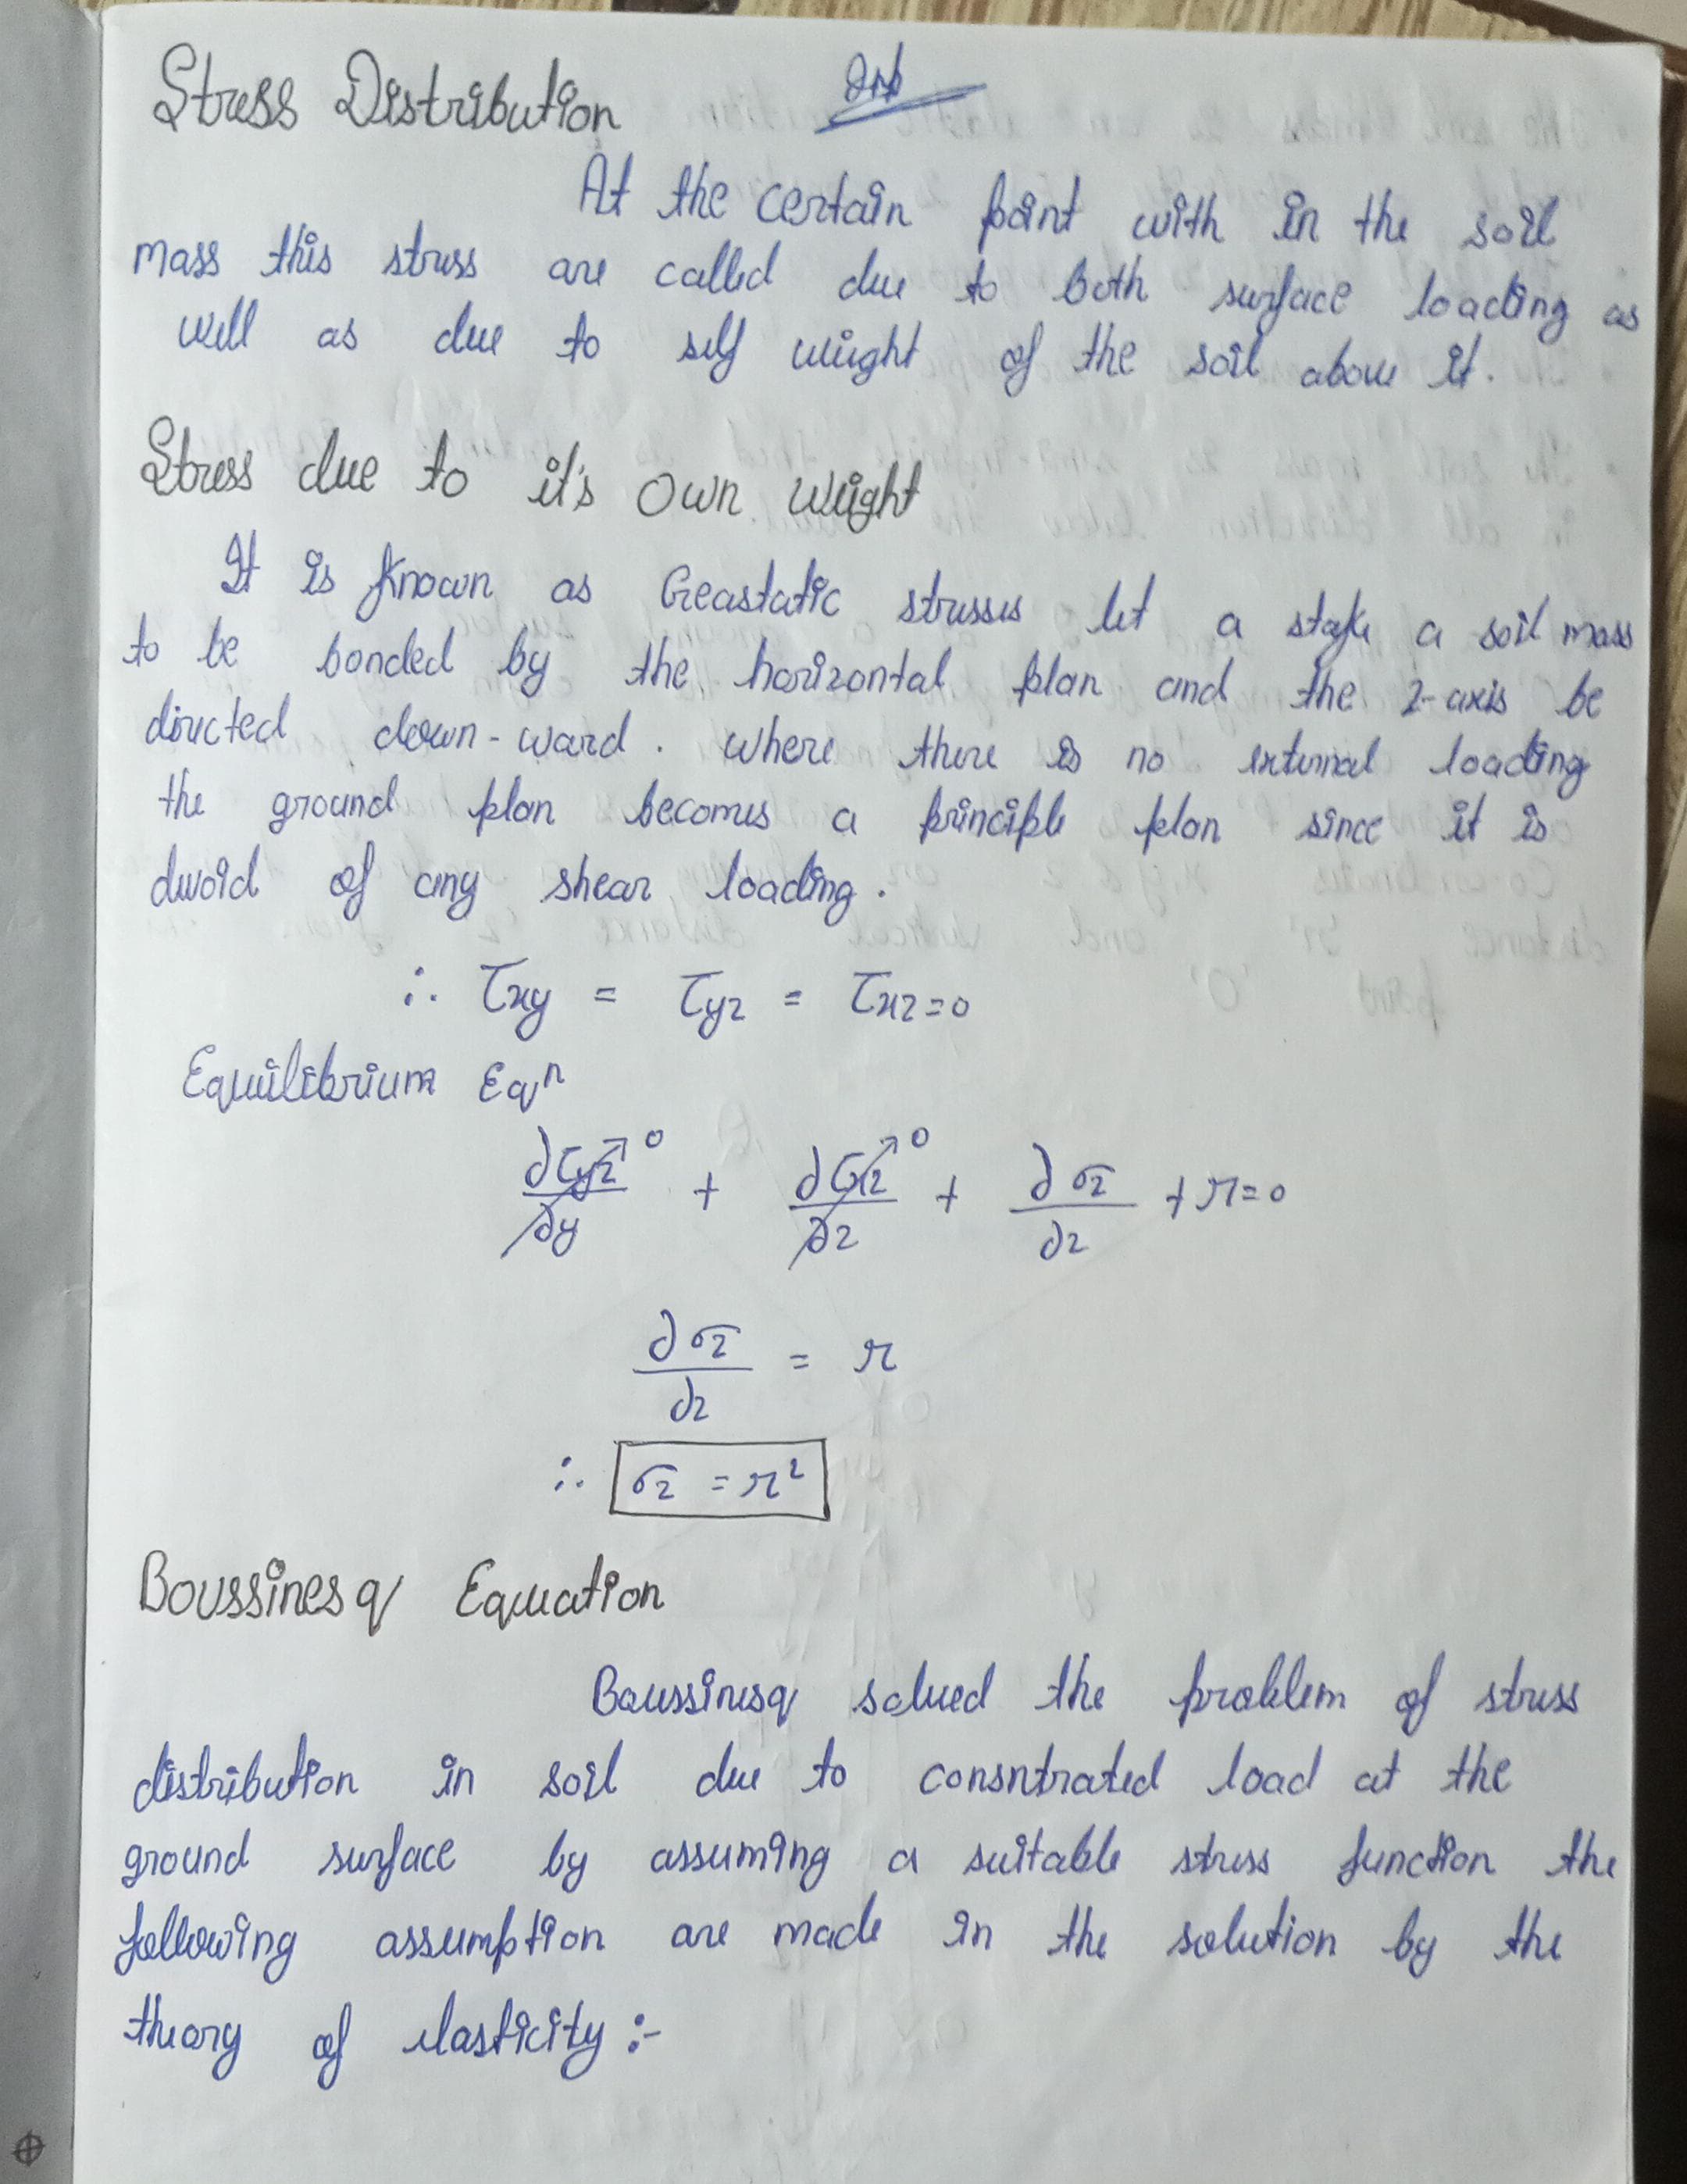 Stress Distribution
At the certain point with in the soil
mass this stress are called due to both surface loading as
well as due to self weight of the soil above it.
Stress due to it's own weight
It is known as Geastatic stresses let a stafe a soil mass
to be bonded by the horizontal plan and the z-axis be
directed down-ward. where there is no external loading
the ground plan becomes a principle plan since it is
dwoid of any shear loading.
∴ τxy = τyz = τxz=0
Equilibrium Eqⁿ
∂τyz/∂y ↗0 + ∂τxz/∂z ↗0 + ∂σz/∂z + r=0
∂σz/∂z = r
∴ σz = r²
Boussinesq Equation
Boussinesq solved the problem of stress
distribution in soil due to consntrated load at the
ground surface by assuming a suitable stress function the
following assumption are made in the solution by the
theory of elasticity :-